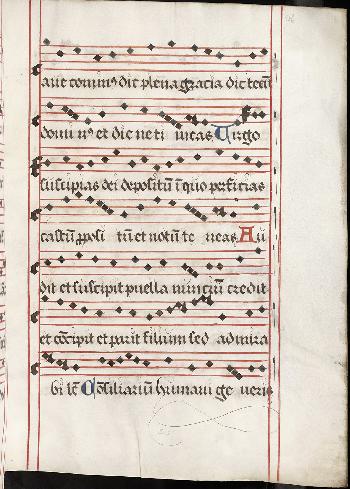 aue domin⁹ dic plena gracia dic tecū
domi n⁹ et dic ne ti meas Uirgo
suscipias dei depositū ī quo perficias
castū pposi tū et uotū te neas Au
dit et suscipit puella nunciū credit
et cōcipit et parit filium sed admira
bi lē Cōsiliariū humani ge neris